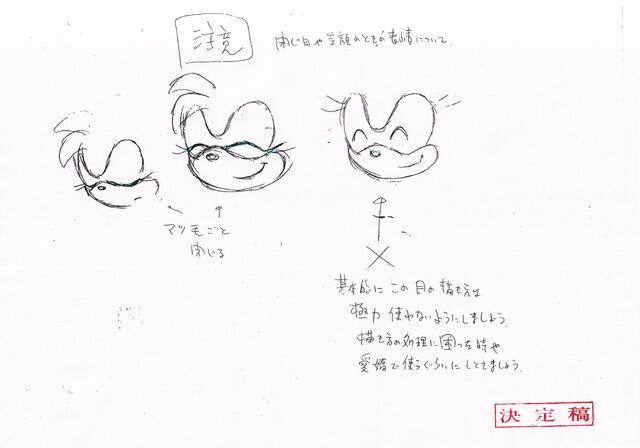 注意
閉じ目や笑顔のときの表情について
マツ毛ごと
閉じる
基本的にこの目の描き方は
極力使わないようにしましょう
描き方の処理に困った時や
愛嬌で使うぐらいにしときましょう。
決定稿